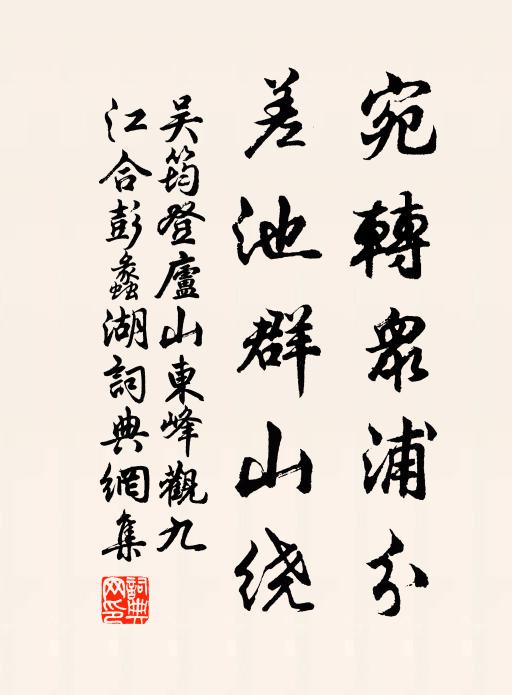 宛轉眾浦分
差池群山绕
吴筠登廬山東峰觀九
江合彭蠡湖詞典網集
詞典
网印